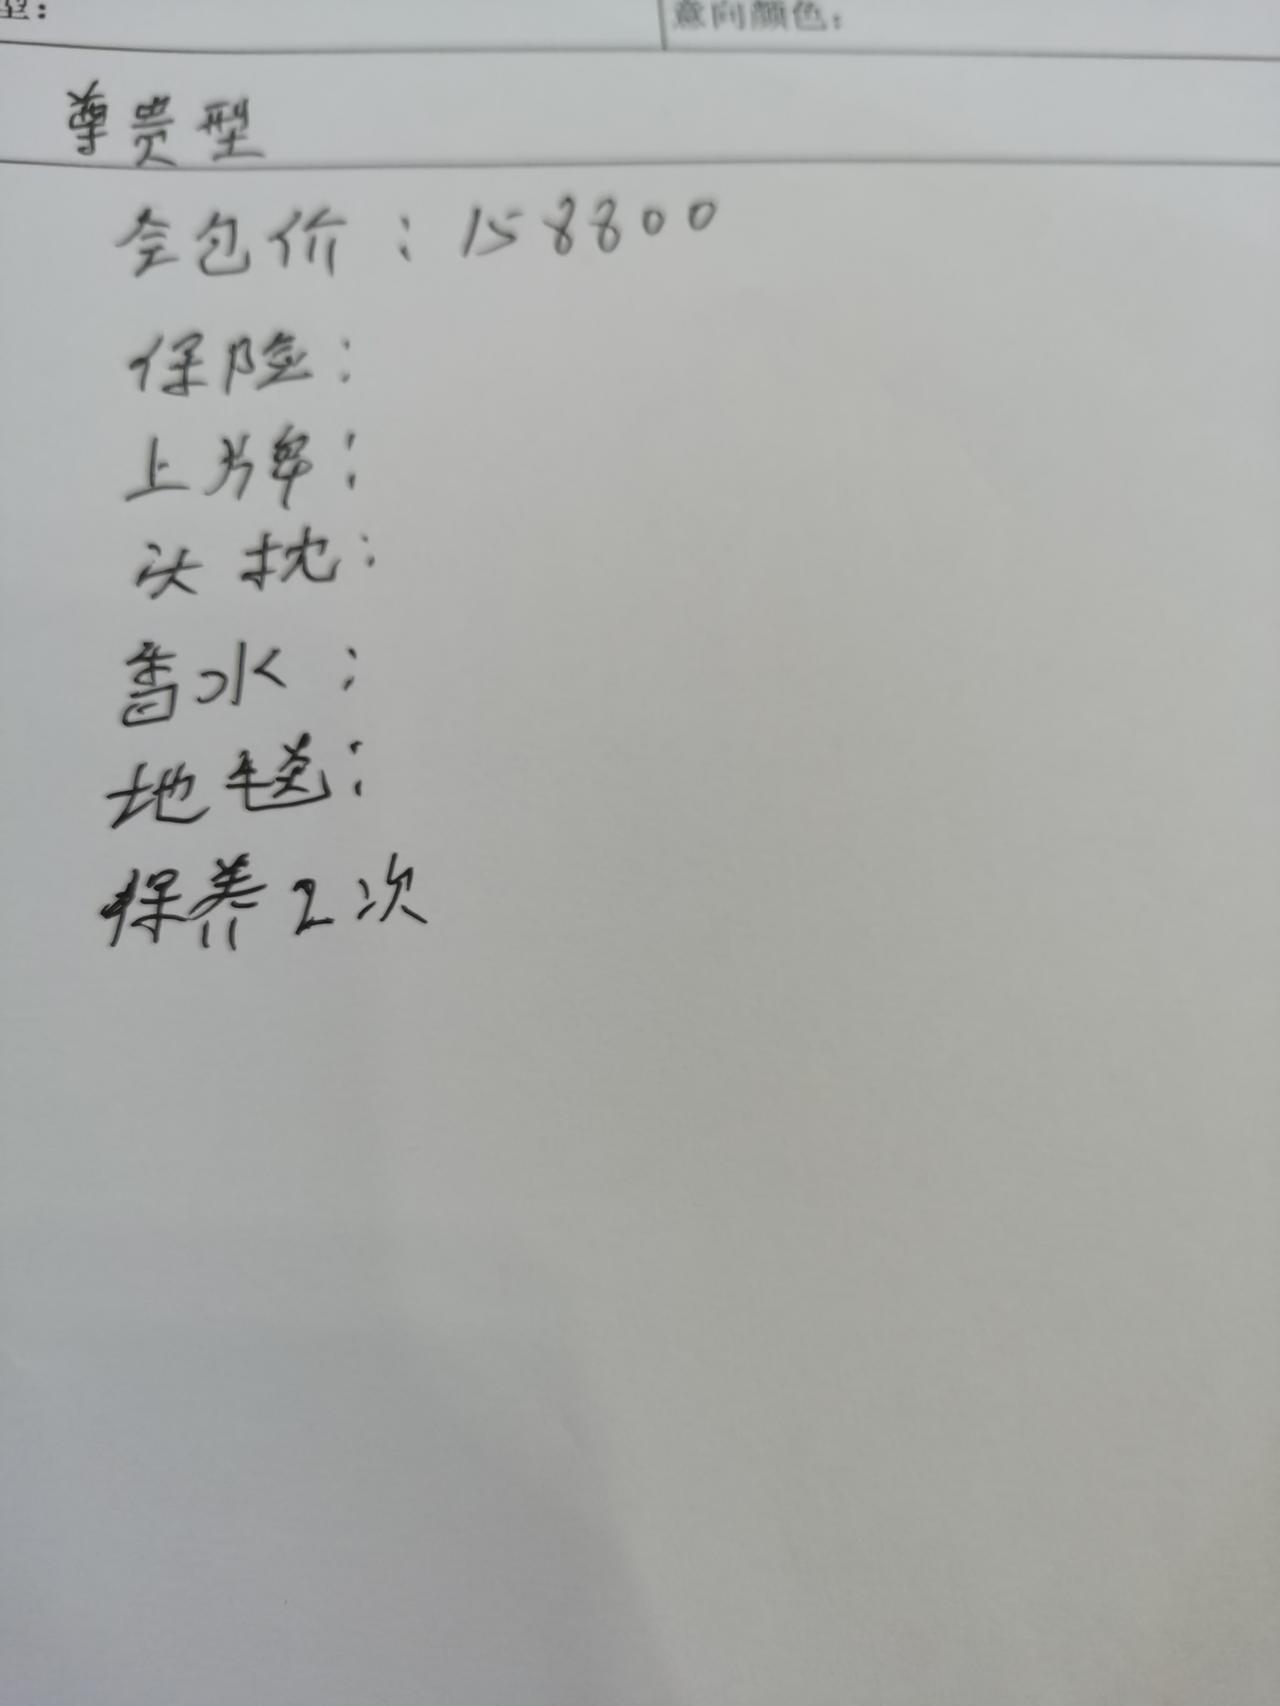 型： 意向颜色：
尊贵型
全包价：158800
保险：
上牌：
头枕：
香水：
地毯：
保养2次